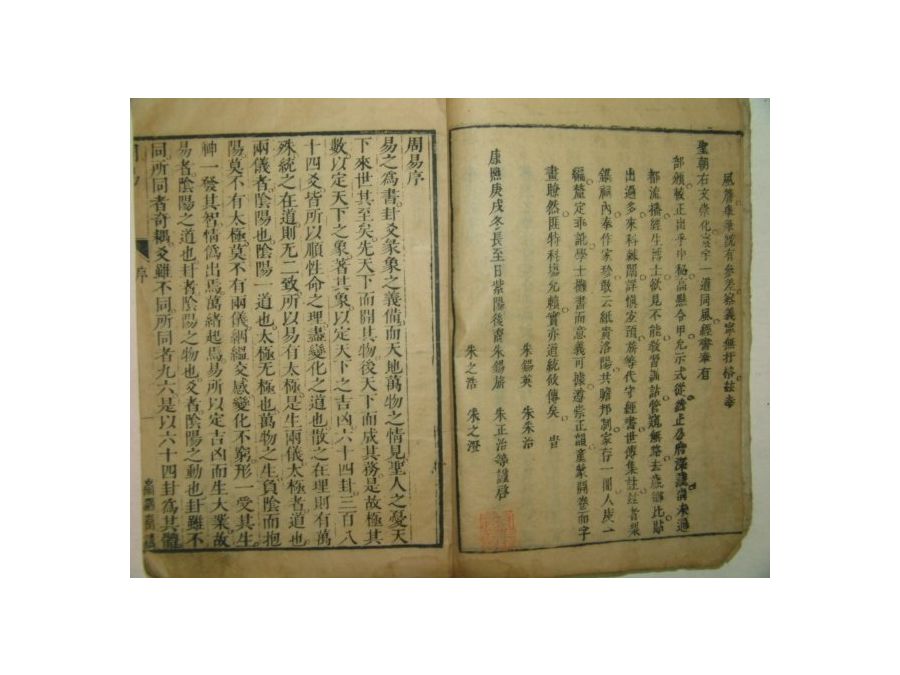 有參差察義寧無扞格茲奉
聖朝右文崇化寰宇一道同風經書幸有
部頒較正出乎中秘高懸合甲允示式從
都流播經生博士欲見不能教習誦讀管窺無路去歲
出過多來科棘闈詳慎族等代守經書世傳集註
祠內奉作家珍敢云紙貴洛陽共贍邦制家存一冊人
編定乖訛學士擁書而意義可據遵崇正韻童蒙開卷而字
畫瞭然匪特科塲允賴實亦道統攸傳矣 旹
朱錫英 朱采治
康熙庚戌冬長至日紫陽後裔朱錫旂 朱正治等謹啓
朱之浩 朱之澄
周易序
易之爲書卦爻彖象之義備而天地萬物之情見聖人之憂天
下來世其至矣先天下而開其物後天下而成其務是故極其
數以定天下之象著其象以定天下之吉凶六十四卦三百八
十四爻皆所以順性命之理盡變化之道也散之在理則有萬
殊統之在道則无二致所以易有太極是生兩儀太極者道也
兩儀者陰陽也陰陽一道也太極无極也萬物之生負陰而抱
陽莫不有太極莫不有兩儀絪縕交感變化不窮形一受其生
神一發其智情僞出焉萬緒起焉易所以定吉凶而生大業故
易者陰陽之道也卦者陰陽之物也爻者陰陽之動也卦雖不
同所同者奇耦爻雖不同所同者九六是以六十四卦爲其體
序